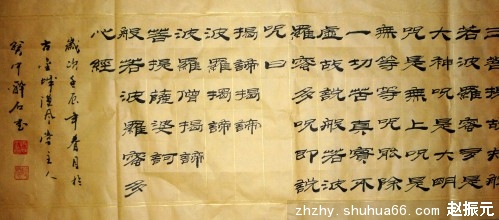 三菩提故知般
若波羅蜜多是
大神咒是大明
咒是無上咒是
無等等咒能除
一切苦真實不
虛故說般若波
羅蜜多咒即說
咒曰
揭諦揭諦
波羅揭諦
波羅僧揭諦
菩提薩婆訶
般若波羅蜜多
心經
歲次壬辰年春月於
古金城漢風堂主人
zhzhy.shuhua66.com 赵振元